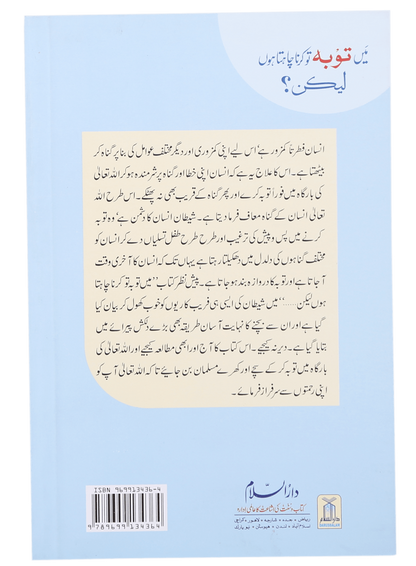 میں توبہ تو کرنا چاہتا ہوں
لیکن؟
انسان فطرتاً کمزور ہے' اس لیے اپنی کمزوری اور دیگر مختلف عوامل کی بنا پر گناہ کر
بیٹھتا ہے۔ اس کا علاج یہ ہے کہ انسان اپنی خطا اور گناہ پر شرمندہ ہو کر اللہ تعالیٰ
کی بارگاہ میں فوراً توبہ کرے اور پھر گناہ کے قریب بھی نہ پھٹکے۔ اس طرح اللہ
تعالیٰ انسان کے گناہ معاف فرما دیتا ہے۔ شیطان انسان کا دشمن ہے' وہ توبہ
کرنے میں پس و پیش کی ترغیب اور طرح طرح طفل تسلیاں دے کر انسان کو
مختلف گناہوں کی دلدل میں دھکیلتا رہتا ہے یہاں تک کہ انسان کا آخری وقت
آ جاتا ہے اور توبہ کا دروازہ بند ہو جاتا ہے۔ پیش نظر کتاب ''میں توبہ تو کرنا چاہتا
ہوں لیکن......'' میں شیطان کی ایسی ہی فریب کاریوں کو خوب کھول کر بیان کیا
گیا ہے اور ان سے بچنے کا نہایت آسان طریقہ بھی بڑے دلکش پیرائے میں
بتایا گیا ہے۔ دیر نہ کیجیے۔ اس کتاب کا آج اور ابھی مطالعہ کیجیے اور اللہ تعالیٰ کی
بارگاہ میں توبہ کر کے سچے اور کھرے مسلمان بن جائیے تاکہ اللہ تعالیٰ آپ کو
اپنی رحمتوں سے سرفراز فرمائے۔
ISBN 969913436-4
9 789699 134364
دارالسلام
کتاب و سنت کی اشاعت کا عالمی ادارہ
ریاض • جدہ • شارجہ • لاہور • کراچی
اسلام آباد • لندن • ہیوسٹن • نیو یارک
دارالسلام